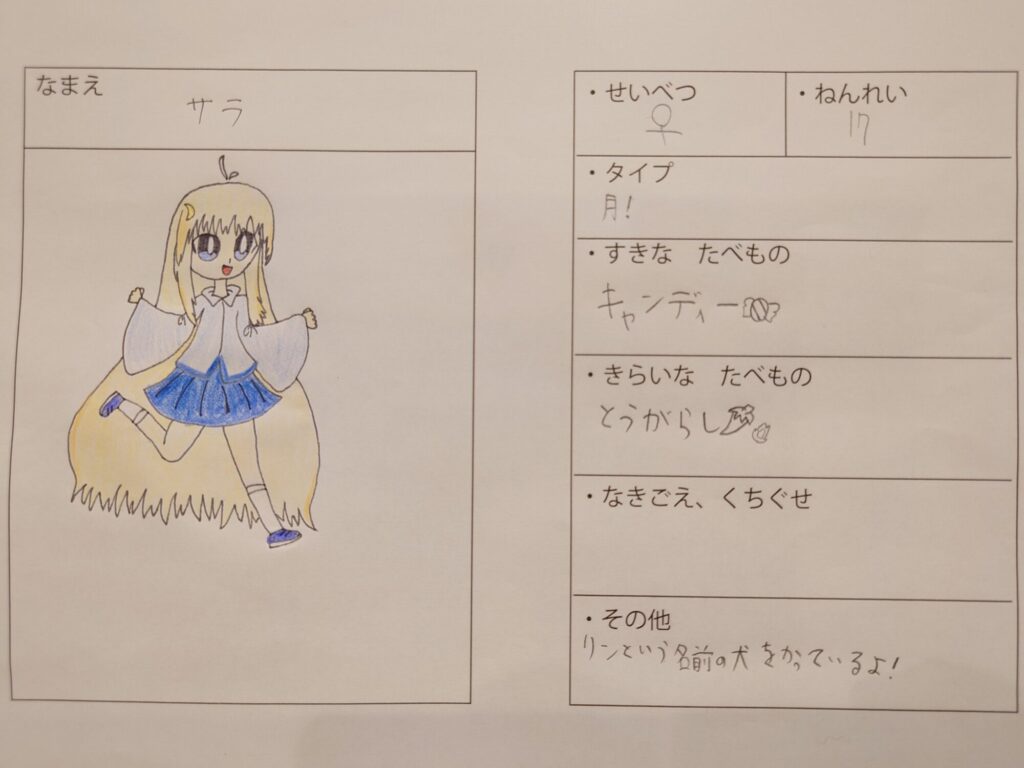 なまえ
サラ
・せいべつ
♀
・ねんれい
17
・タイプ
月!
・すきな たべもの
キャンディー
・きらいな たべもの
とうがらし
・なきごえ、くちぐせ
・その他
リンという名前の犬をかっているよ!